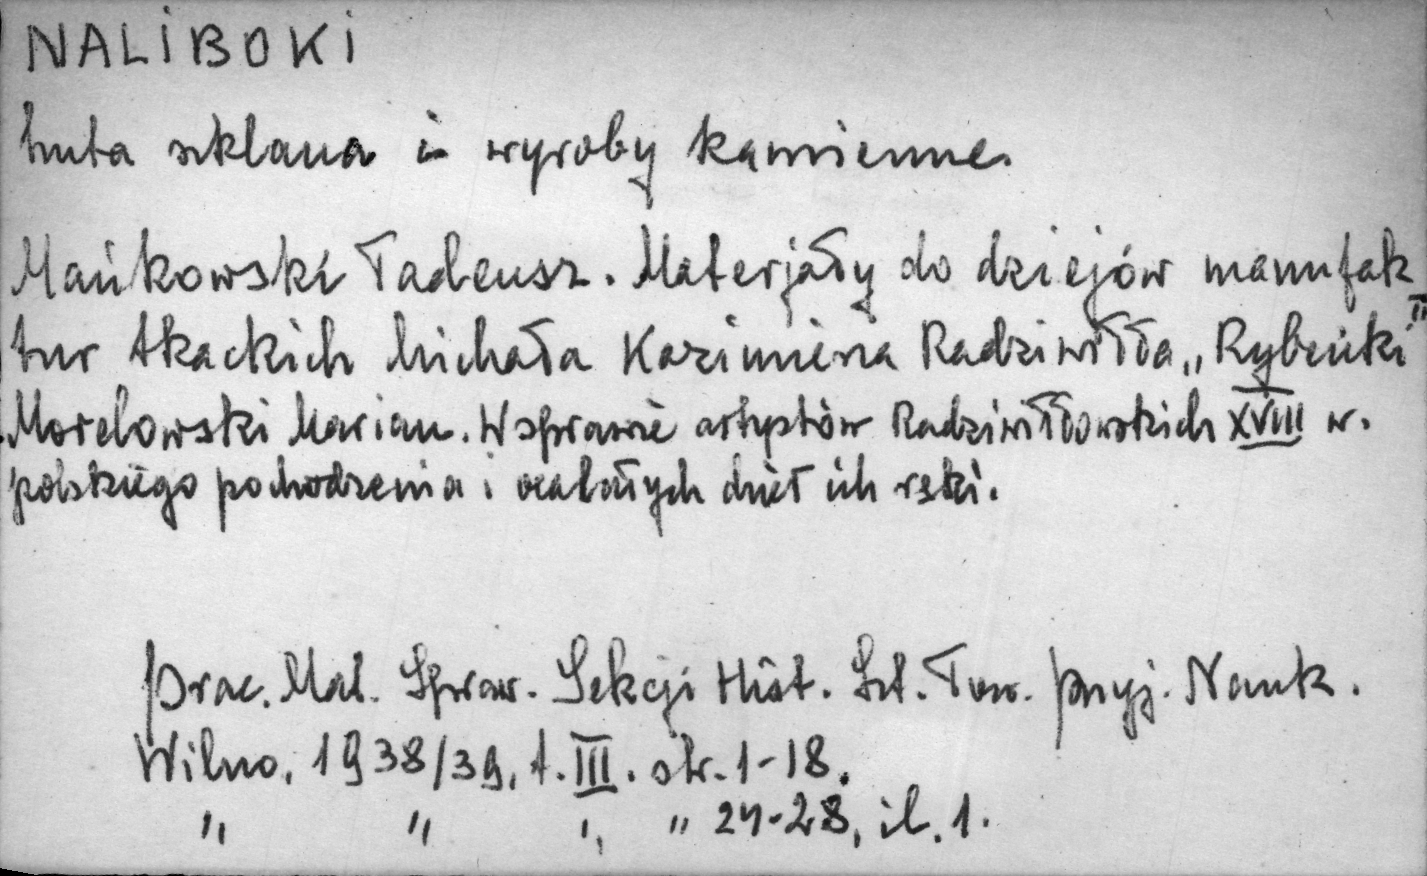 NALIBOKI
huta szklana i wyroby kamienne.
Mańkowski Tadeusz. Materjały do dziejów manufak
tur tkackich Michała Kazimierza Radziwiłła „Rybeńki"
Morelowski Marian. W sprawie artystów Radziwiłłowskich XVIII w.
polskiego pochodzenia i ocalałych dzieł ich ręki.
Prac. Mat. Spraw. Sekcji Hist. Szt. Tow. Przyj. Nauk.
Wilno, 1938/39, t. III. str. 1-18.
" " " " 24-28, il. 1.